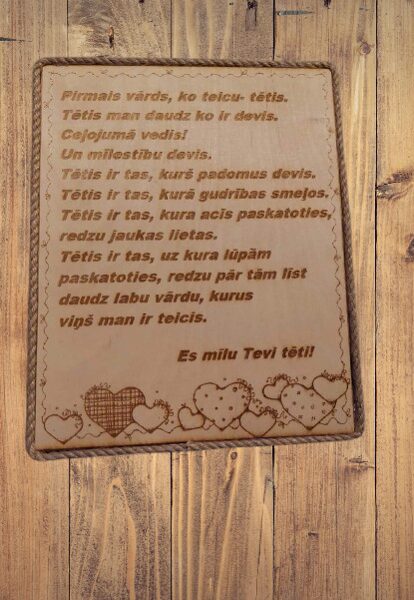 Pirmais vārds, ko teicu- tētis.
Tētis man daudz ko ir devis.
Ceļojumā vedis!
Un mīlestību devis.
Tētis ir tas, kurš padomus devis.
Tētis ir tas, kurā gudrības smeļos.
Tētis ir tas, kura acīs paskatoties,
redzu jaukas lietas.
Tētis ir tas, uz kura lūpām
paskatoties, redzu pār tām līst
daudz labu vārdu, kurus
viņš man ir teicis.
Es mīlu Tevi tēti!